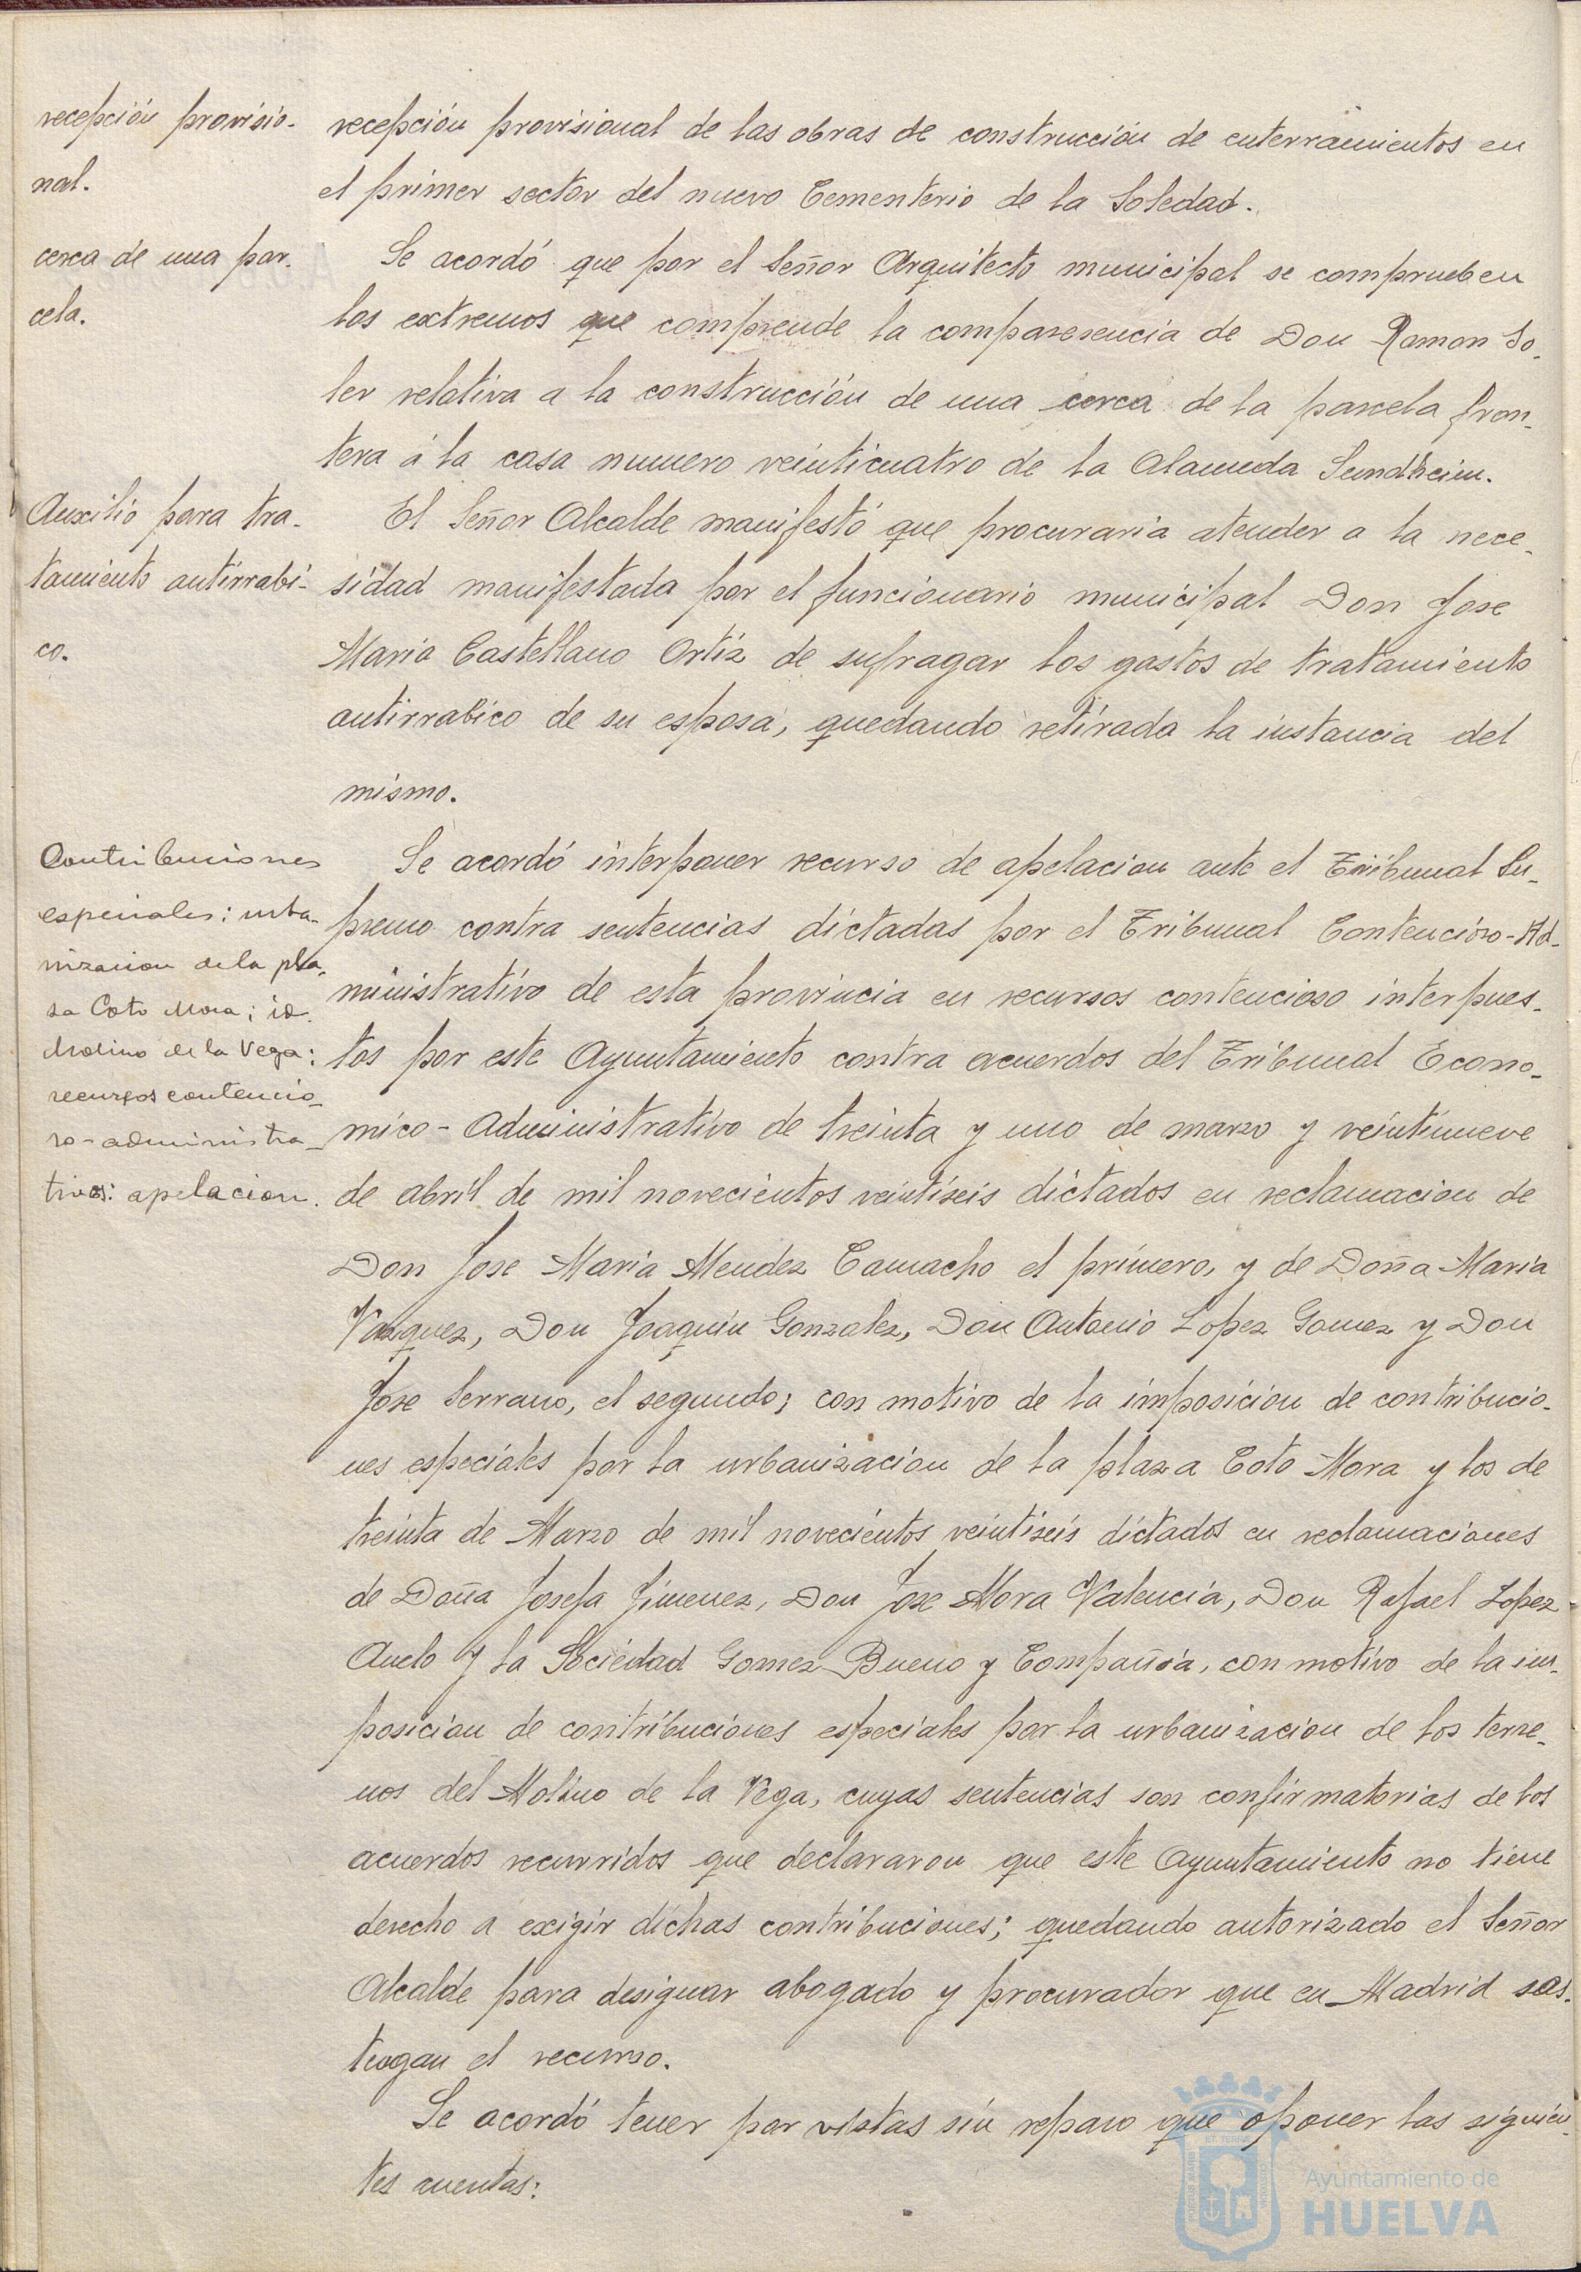 recepción provisio-
nal.
cerca de una par-
cela.
Auxilio para tra-
tamiento antirrabi-
co.
Contribuciones
especiales: urba-
nizacion de la pla-
za Coto Mora; id.
Molino de la Vega:
recursos contencio-
so-administra-
tivos: apelacion.
recepción provisional de las obras de construcción de enterramientos en
el primer sector del nuevo Cementerio de la Soledad.
Se acordó que por el Señor Arquitecto municipal se comprueben
los extremos que comprende la comparesencia de Don Ramon So-
ler relativa a la construcción de una cerca de la parcela fron-
tera á la casa numero veinticuatro de la Alameda Sundheim.
El Señor Alcalde manifestó que procuraria atender a la nece-
sidad manifestada por el funcionario municipal Don Jose
Maria Castellano Ortiz de sufragar los gastos de tratamiento
antirrabico de su esposa, quedando retirada la instancia del
mismo.
Se acordó interponer recurso de apelacion ante el Tribunal Su-
premo contra sentencias dictadas por el Tribunal Contencioso-Ad-
ministrativo de esta provincia en recursos contencioso interpues-
tos por este Ayuntamiento contra acuerdos del Tribunal Econo-
mico-Administrativo de treinta y uno de marzo y veintinueve
de abril de mil novecientos veintiseis dictados en reclamacion de
Don Jose Maria Mendez Camacho el primero, y de Doña Maria
Vazquez, Don Joaquin Gonzalez, Don Antonio Lopez Gomez y Don
Jose Serrano, el segundo; con motivo de la imposicion de contribucio-
nes especiales por la urbanizacion de la plaza Coto Mora y los de
treinta de Marzo de mil novecientos veintiseis dictados en reclamaciones
de Doña Josefa Jimenez, Don Jose Mora Valencia, Don Rafael Lopez
y la Sociedad Gomez Bueno y Compañia, con motivo de la im-
posicion de contribuciones especiales por la urbanizacion de los terre-
nos del Molino de la Vega, cuyas sentencias son confirmatorias de los
acuerdos recurridos que declararon que este Ayuntamiento no tiene
derecho a exigir dichas contribuciones; quedando autorizado el Señor
Alcalde para designar abogado y procurador que en Madrid sos-
tengan el recurso.
Se acordó tener por vistas sin reparo que oponer las siguien-
tes cuentas:
Ayuntamiento de
HUELVA